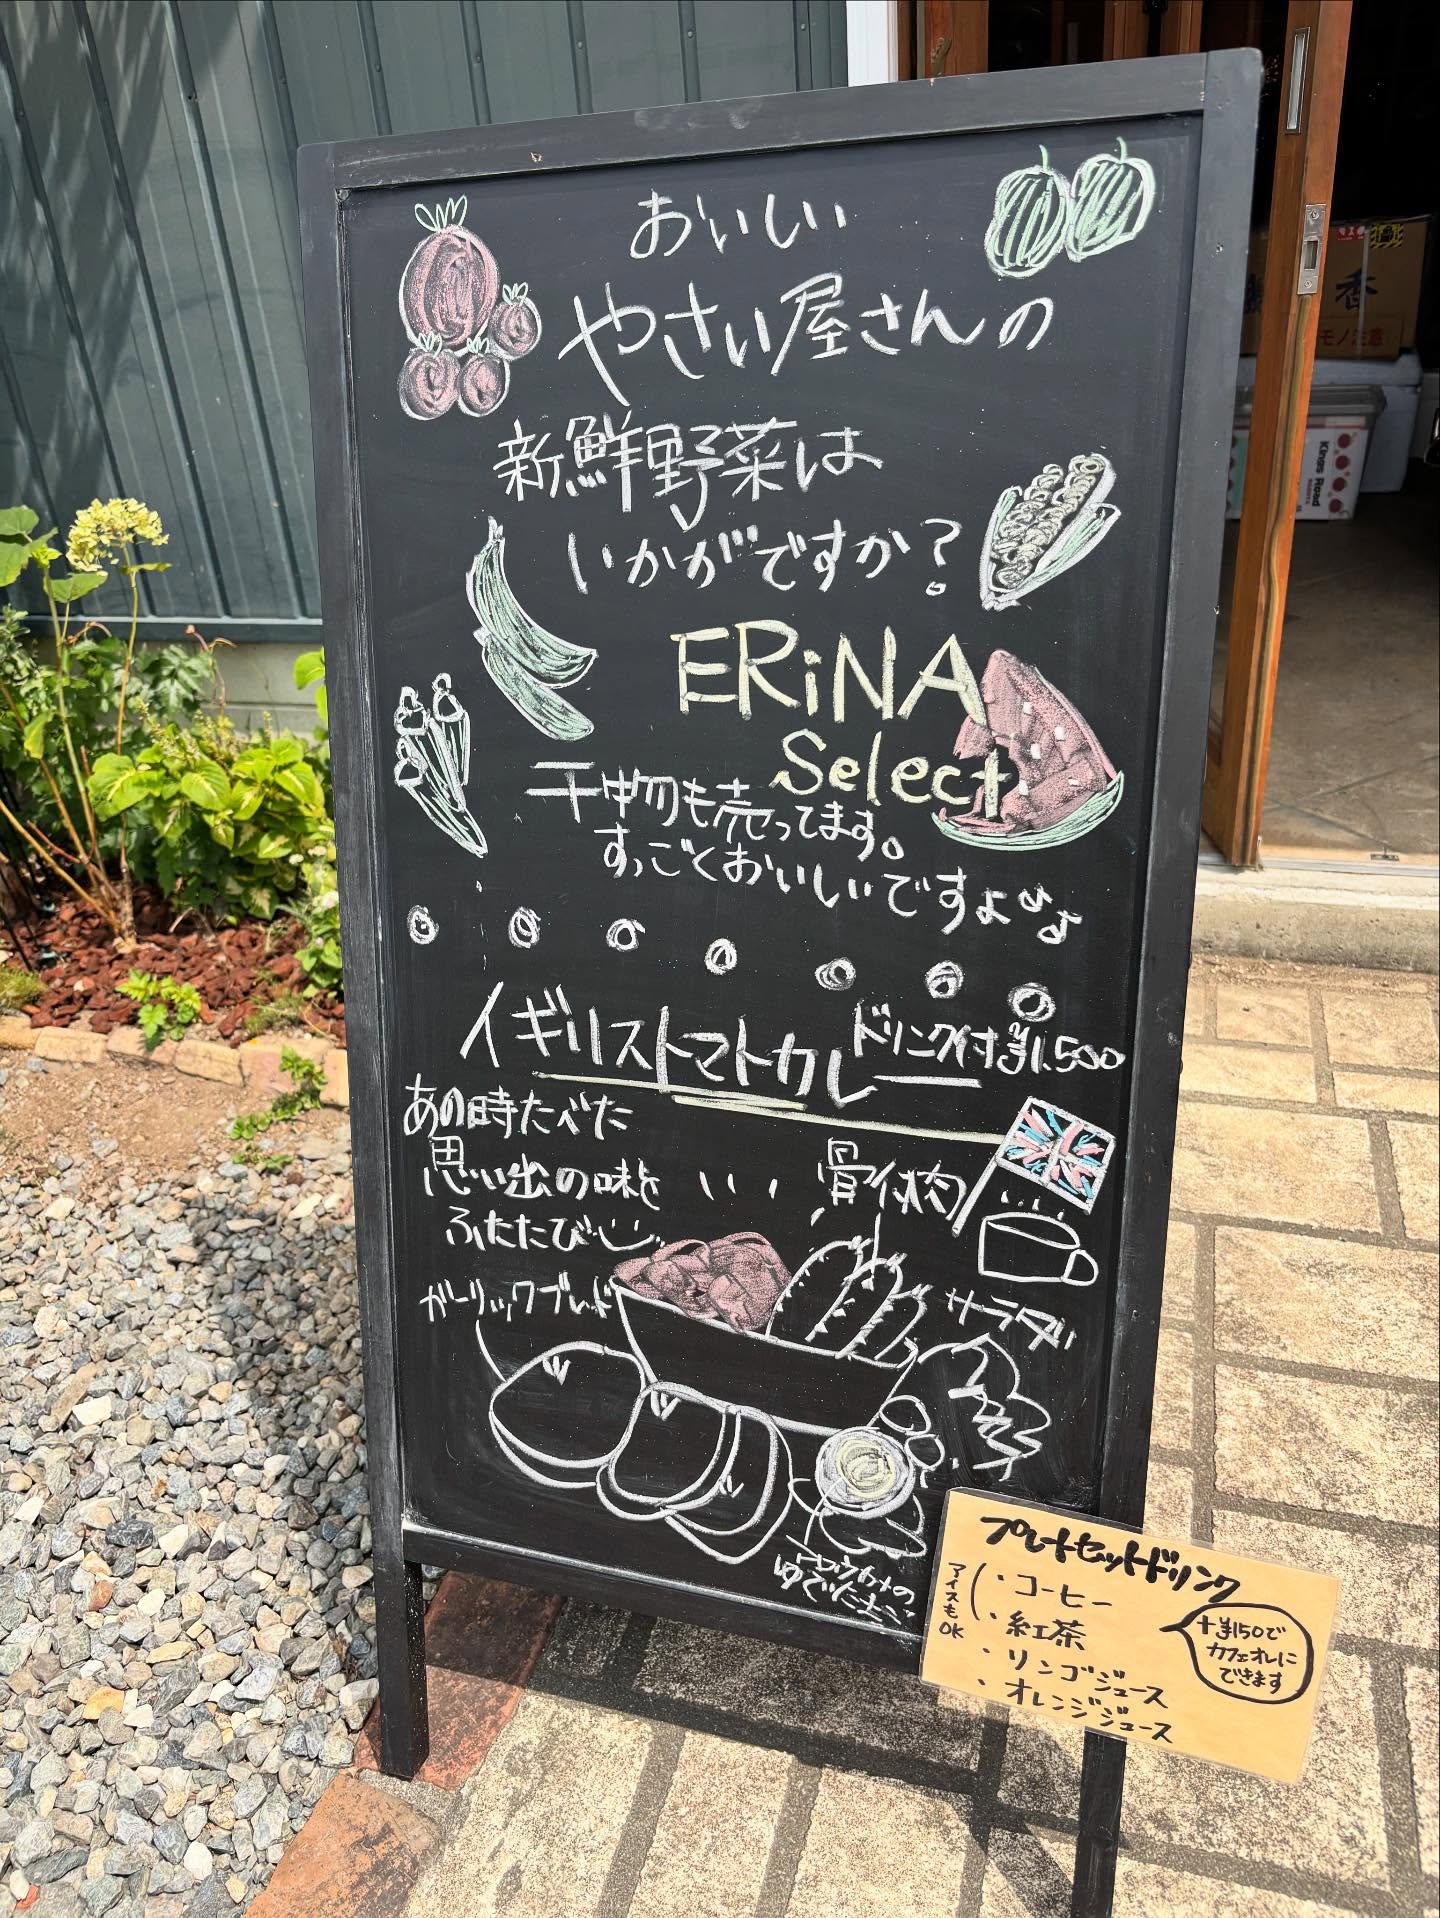 おいしい
やさい屋さんの
新鮮野菜は
いかがですか?
ERiNA
Select
干物も売ってます。
すっごくおいしいですよ
イギリストマトカレー
ドリンク付 ¥1,500
あの時たべた
思い出の味を
ふたたび
骨付肉
ガーリックブレッド
サラダ
ゆでたまご
プレートセットドリンク
アイスもOK
・コーヒー
・紅茶
・リンゴジュース
・オレンジジュース
+¥150で
カフェオレに
できます
香
モノ注意
Kings Road